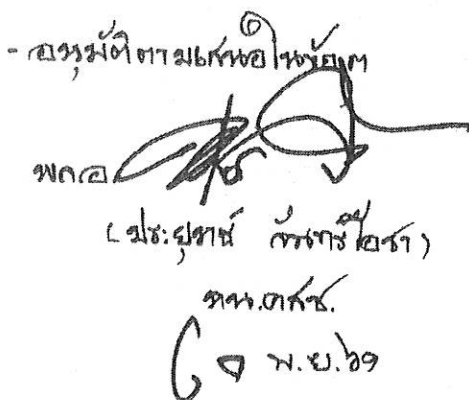 - อนุมัติตามเสนอในข้อ ๓
พล.อ.
(ประยุทธ์ จันทร์โอชา)
หน.คสช.
พ.ย.๖๑